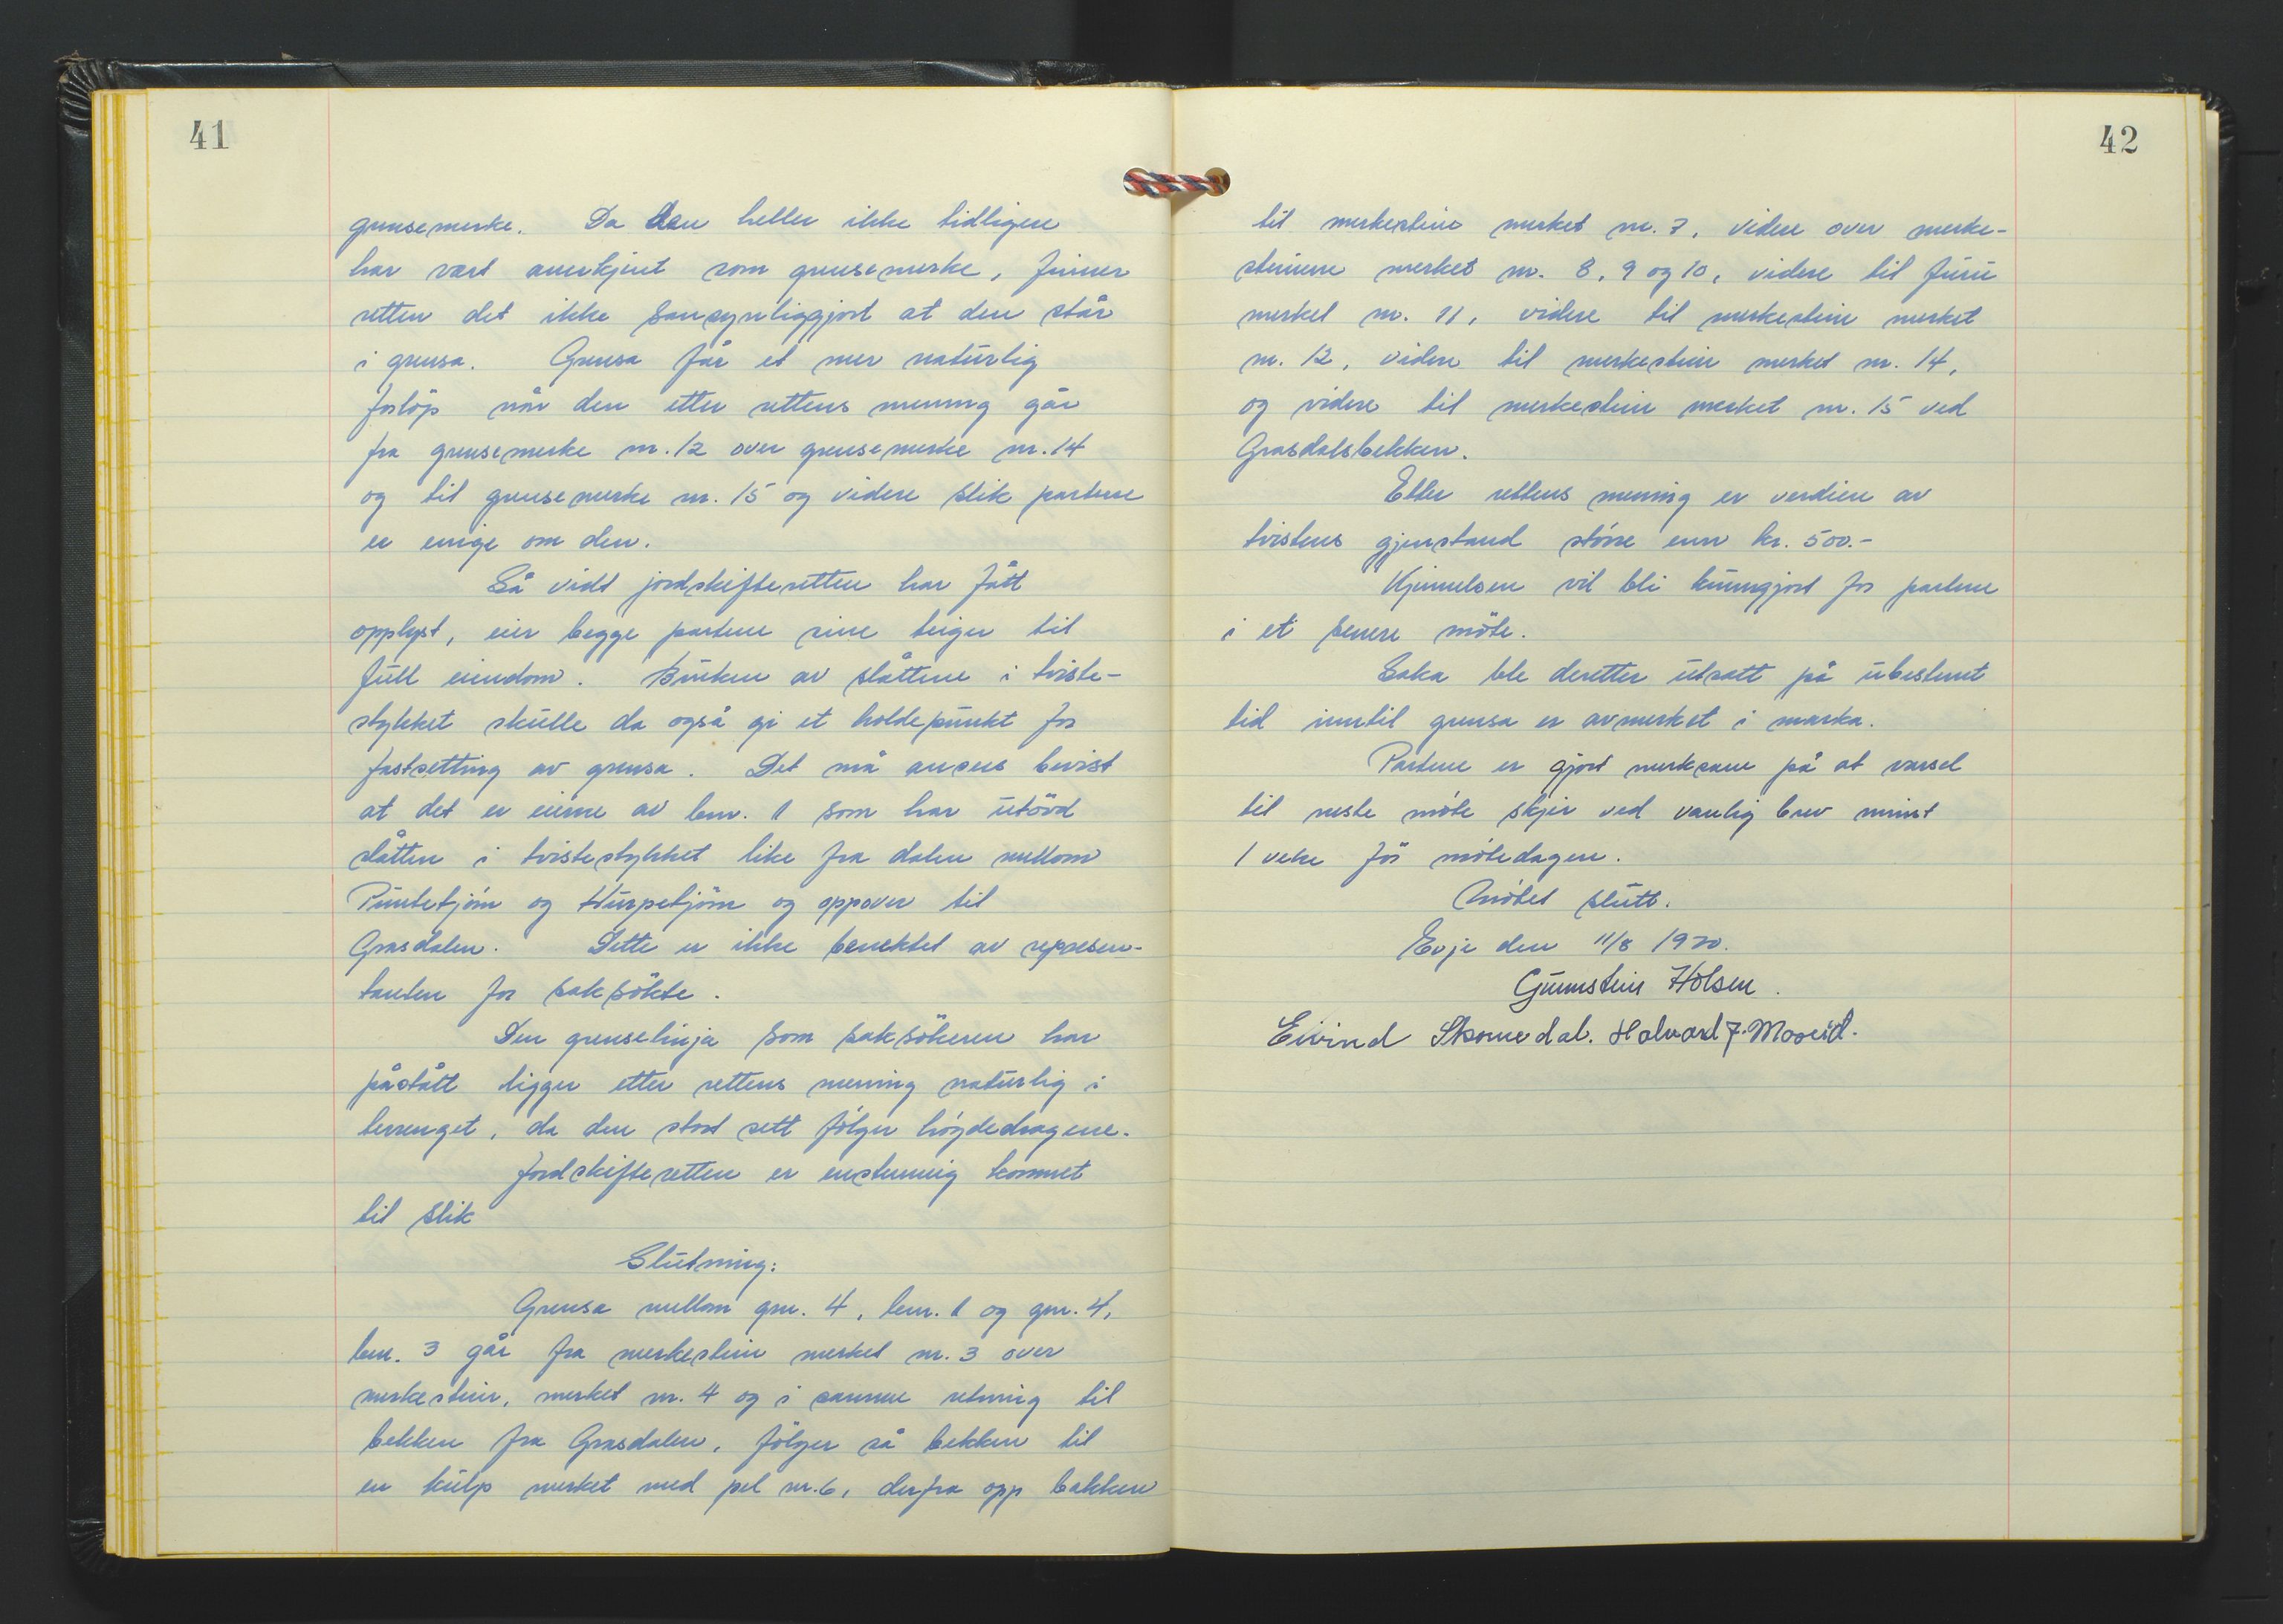 41
grensemerke. Da den heller ikke tidligere
har vært anerkjent som grensemerke, finner
retten det ikke sansynliggjort at den står
i grensa. Grensa får et mer naturlig
forløp når den etter rettens mening går
fra grensemerke nr. 12 over grensemerke nr. 14
og til grensemerke nr. 15 og videre slik partene
er enige om den.
Så vidt jordskifteretten har fått
opplyst, eier begge partene sine teiger til
full eiendom. Bruken av slåttene i tviste-
stykket skulle da også gi et holdepunkt for
fastsetting av grensa. Det må ansees bevist
at det er eierne av bnr. 1 som har utövd
slåtten i tvistestykket like fra dalen mellom
Puntetjörn og Hurpetjörn og oppover til
Grasdalen. Dette er ikke benektet av represen-
tanten for saksökte.
Den grenselinja som saksökeren har
påstått ligger etter rettens mening naturlig i
terrenget, da den stort sett fölger høydedragene.
Jordskifteretten er enstemmig kommet
til slik
Slutning:
Grensa mellom gnr. 4, bnr. 1 og gnr. 4,
bnr. 3 går fra merkestein merket nr. 3 over
merkestein, merket nr. 4 og i samme retning til
bekken fra Grasdalen, fölger så bekken til
en kulp merket med pel nr. 6, derfra opp bakken
42
til merkestein merket nr. 7, videre over merke-
steinene merket nr. 8, 9 og 10, videre til furu
merket nr. 11, videre til merkestein merket
nr. 12, videre til merkestein merket nr. 14,
og videre til merkestein merket nr. 15 ved
Grasdalsbekken.
Etter rettens mening er verdien av
tvistens gjenstand större enn kr. 500.-
Kjennelsen vil bli kunngjort for partene
i et senere möte.
Saka ble deretter utsatt på ubestemt
tid inntil grensa er avmerket i marka.
Partene er gjort merksame på at varsel
til neste möte skjer ved vanlig brev minst
1 veke för mötedagen.
Mötet slutt.
Evje den 11/8 1970.
Gunnstein Holsen.
Eivind Skomedal. Halvard J. Mooeid.